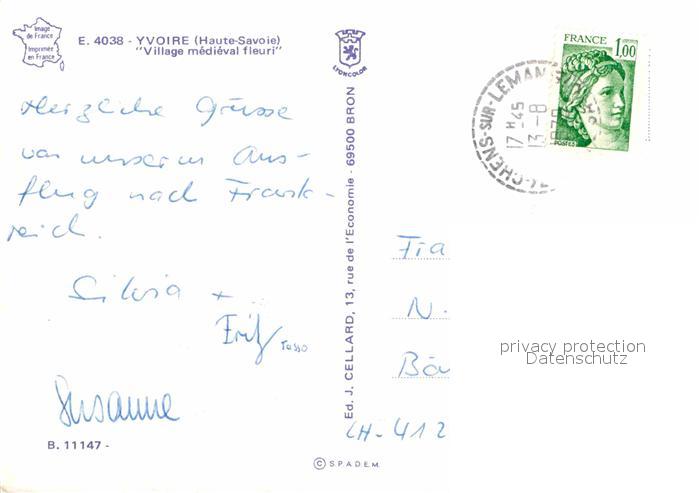 Image
de France
Imprimée
en France
E. 4038 - YVOIRE (Haute-Savoie)
"Village médiéval fleuri"
LYONCOLOR
FRANCE
1,00
POSTES
CHENS-SUR-LEMAN
17 H 45
13-8
Herzliche Grüsse
von unserm Aus-
flug nach Frank-
reich.
Silvia +
Fritz
Tasso
Susanne
B. 11147 -
Ed. J. CELLARD, 13, rue de l'Economie - 69500 BRON
Fra
N.
Bä
CH-412
privacy protection
Datenschutz
© S.P.A.D.E.M.